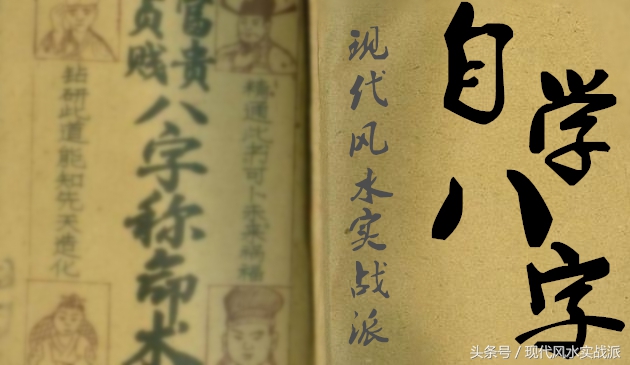 自学八字
现代风水实战派
精通此术可卜未来祸福
富貴
贫贱
八字称命术
钻研此道能知先天造化
头条号 / 现代风水实战派